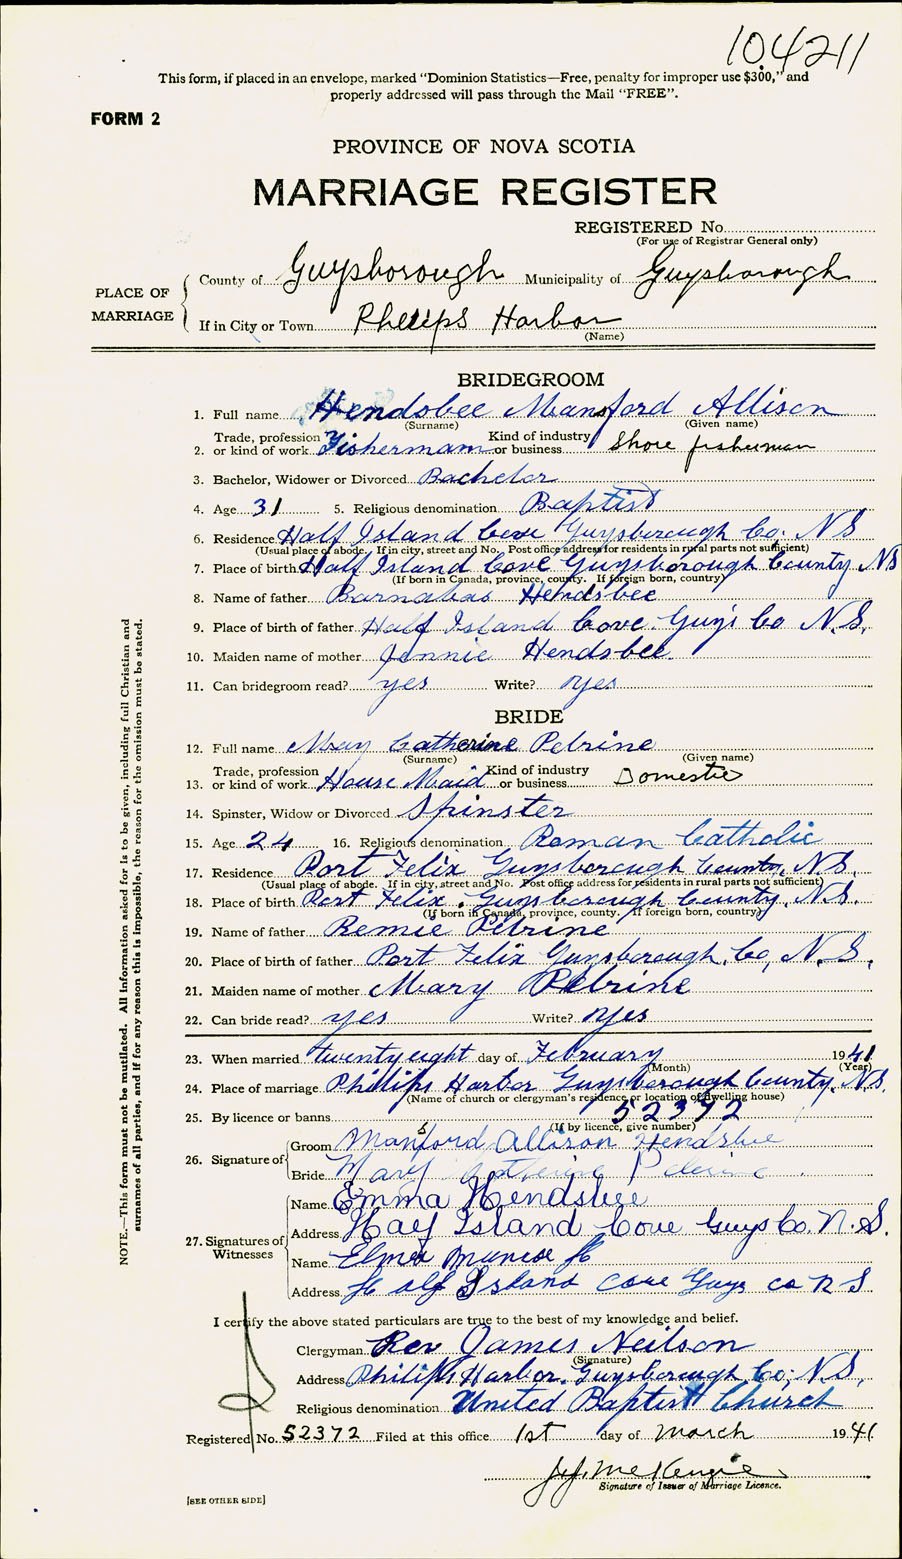 104211
This form, if placed in an envelope, marked "Dominion Statistics—Free, penalty for improper use $300," and
properly addressed will pass through the Mail "FREE".
FORM 2
PROVINCE OF NOVA SCOTIA
MARRIAGE REGISTER
REGISTERED No.
(For use of Registrar General only)
PLACE OF MARRIAGE
County of Guysborough Municipality of Guysborough
If in City or Town Philips Harbor
(Name)
BRIDEGROOM
1. Full name Hendsbee Mansford Allison
(Surname) (Given name)
2. Trade, profession or kind of work Fisherman Kind of industry or business Shore fisherman
3. Bachelor, Widower or Divorced Bachelor
4. Age 31 5. Religious denomination Baptist
6. Residence Half Island Cove Guysborough Co. NS
(Usual place of abode. If in city, street and No. Post office address for residents in rural parts not sufficient)
7. Place of birth Half Island Cove Guysborough County NS
(If born in Canada, province, county. If foreign born, country)
8. Name of father Barnabas Hendsbee
9. Place of birth of father Half Island Cove Guy's Co N.S.
10. Maiden name of mother Jennie Hendsbee.
11. Can bridegroom read? yes Write? yes
BRIDE
12. Full name May Catherine Petrine
(Surname) (Given name)
13. Trade, profession or kind of work House Maid Kind of industry or business Domestic
14. Spinster, Widow or Divorced Spinster
15. Age 24 16. Religious denomination Roman Catholic
17. Residence Port Felix Guysborough County, N.S.
(Usual place of abode. If in city, street and No. Post office address for residents in rural parts not sufficient)
18. Place of birth Port Felix, Guysborough County, N.S.
(If born in Canada, province, county. If foreign born, country)
19. Name of father Remie Petrine
20. Place of birth of father Port Felix Guysborough, Co, N.S.
21. Maiden name of mother Mary Petrine
22. Can bride read? yes Write? yes
23. When married twenty eight day of February 1941
(Month) (Year)
24. Place of marriage Philips Harbor Guysborough County, N.S.
(Name of church or clergyman's residence or location of dwelling house)
25. By licence or banns 52372
(If by licence, give number)
26. Signature of Groom Mansford Allison Hendsbee
Bride Mary Catherine Petrine
27. Signatures of Witnesses
Name Emma Hendsbee
Address Half Island Cove Guys Co. N.S.
Name Elmer Munroe
Address Half Island Cove Guys co N S
I certify the above stated particulars are true to the best of my knowledge and belief.
Clergyman Rev James Neilson
(Signature)
Address Philips Harbor, Guysborough Co; N.S,
Religious denomination United Baptist Church
Registered No. 52372 Filed at this office 1st day of March 1941
J.J. McKenzie
Signature of Issuer of Marriage Licence.
[SEE OTHER SIDE]
NOTE.—This form must not be mutilated. All Information asked for is to be given, including full Christian and
surnames of all parties, and if for any reason this is impossible, the reason for the omission must be stated.